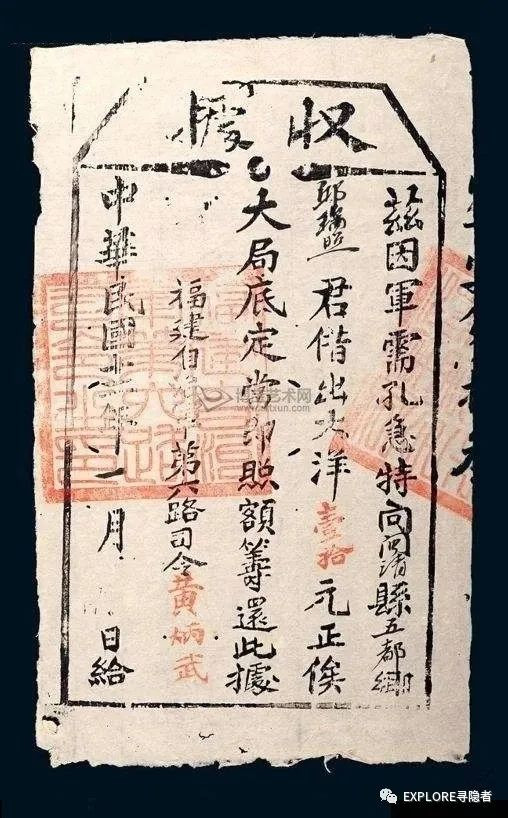 収據
茲因軍需孔急特向閩清縣五都鄉
邱瑞照君借出大洋壹拾元正俟
大局底定當即照額籌還此據
福建自軍第六路司令黃炳武
中華民國十二年一月 日給
艺术网
EXPLORE寻隐者